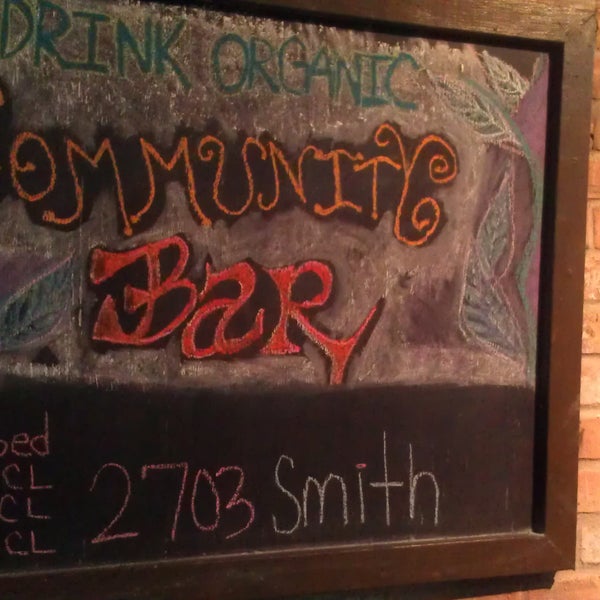 DRINK ORGANIC
COMMUNITY
BAR
CL
CL
CL
2703 Smith